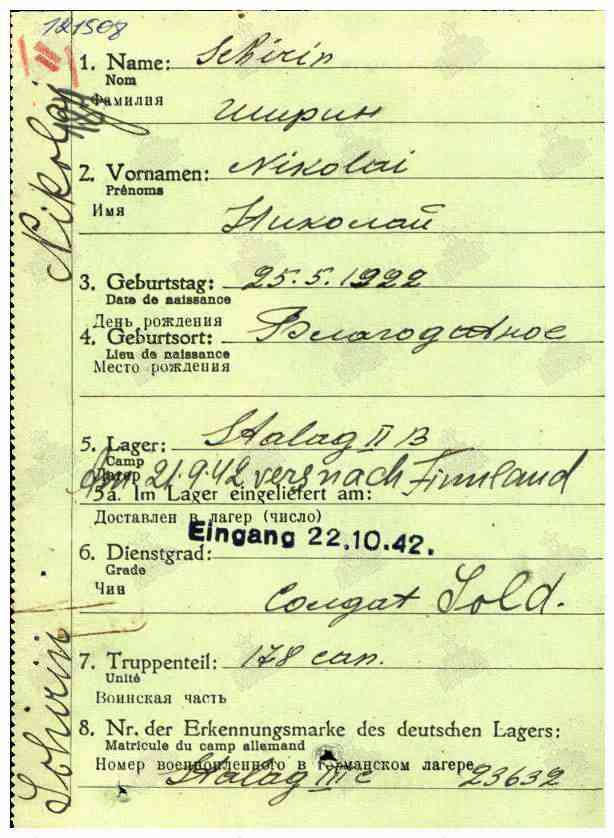 121508
II
1. Name: Schirin
Nom
Фамилия
Ширин
2. Vornamen: Nikolai
Prénoms
Имя
Николай
3. Geburtstag: 25.5.1922
Date de naissance
День рождения
4. Geburtsort: Благодатное
Lieu de naissance
Место рождения
5. Lager: Stalag II B
Camp
Лагер
Am 21.9.42 vers nach Finnland
5a. Im Lager eingeliefert am:
Доставлен в лагер (число)
Eingang 22.10.42.
6. Dienstgrad:
Grade
Чин
Солдат Sold.
7. Truppenteil: 178 сап.
Unité
Воинская часть
8. Nr. der Erkennungsmarke des deutschen Lagers:
Matricule du camp allemand
Номер военнопленного в германском лагере
Stalag III C 23632
Schirin Nikolaj